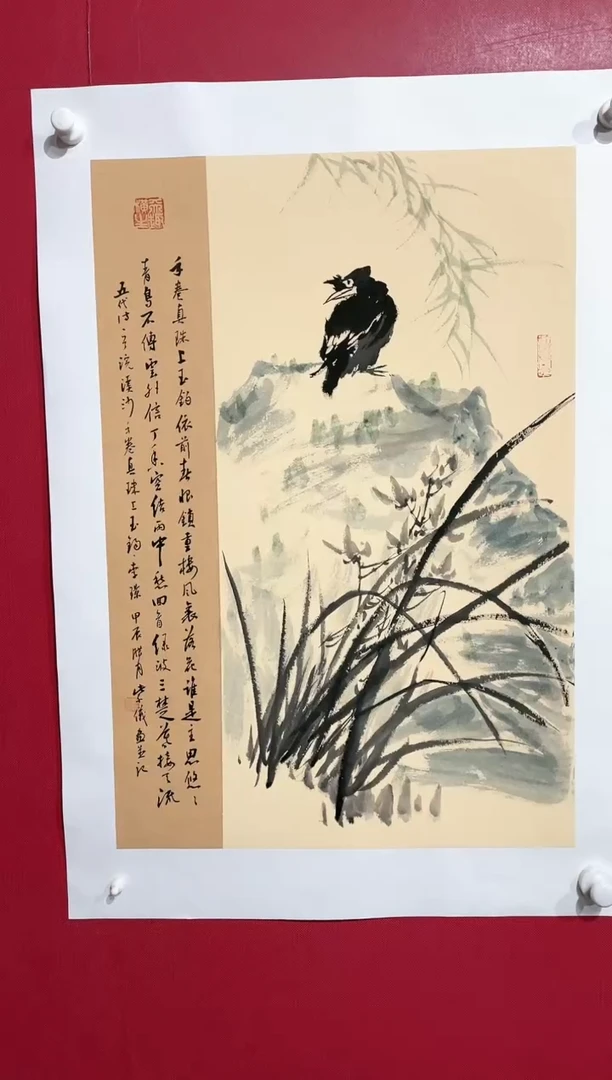 手卷真珠上玉鈎依前春恨鎖重樓風裏落花誰是主思悠〻
青鳥不傳雲外信丁香空結雨中愁回首綠波三楚暮接天流
五代 浣溪沙手卷真珠上玉鈎李璟甲辰腊月 儀画並记